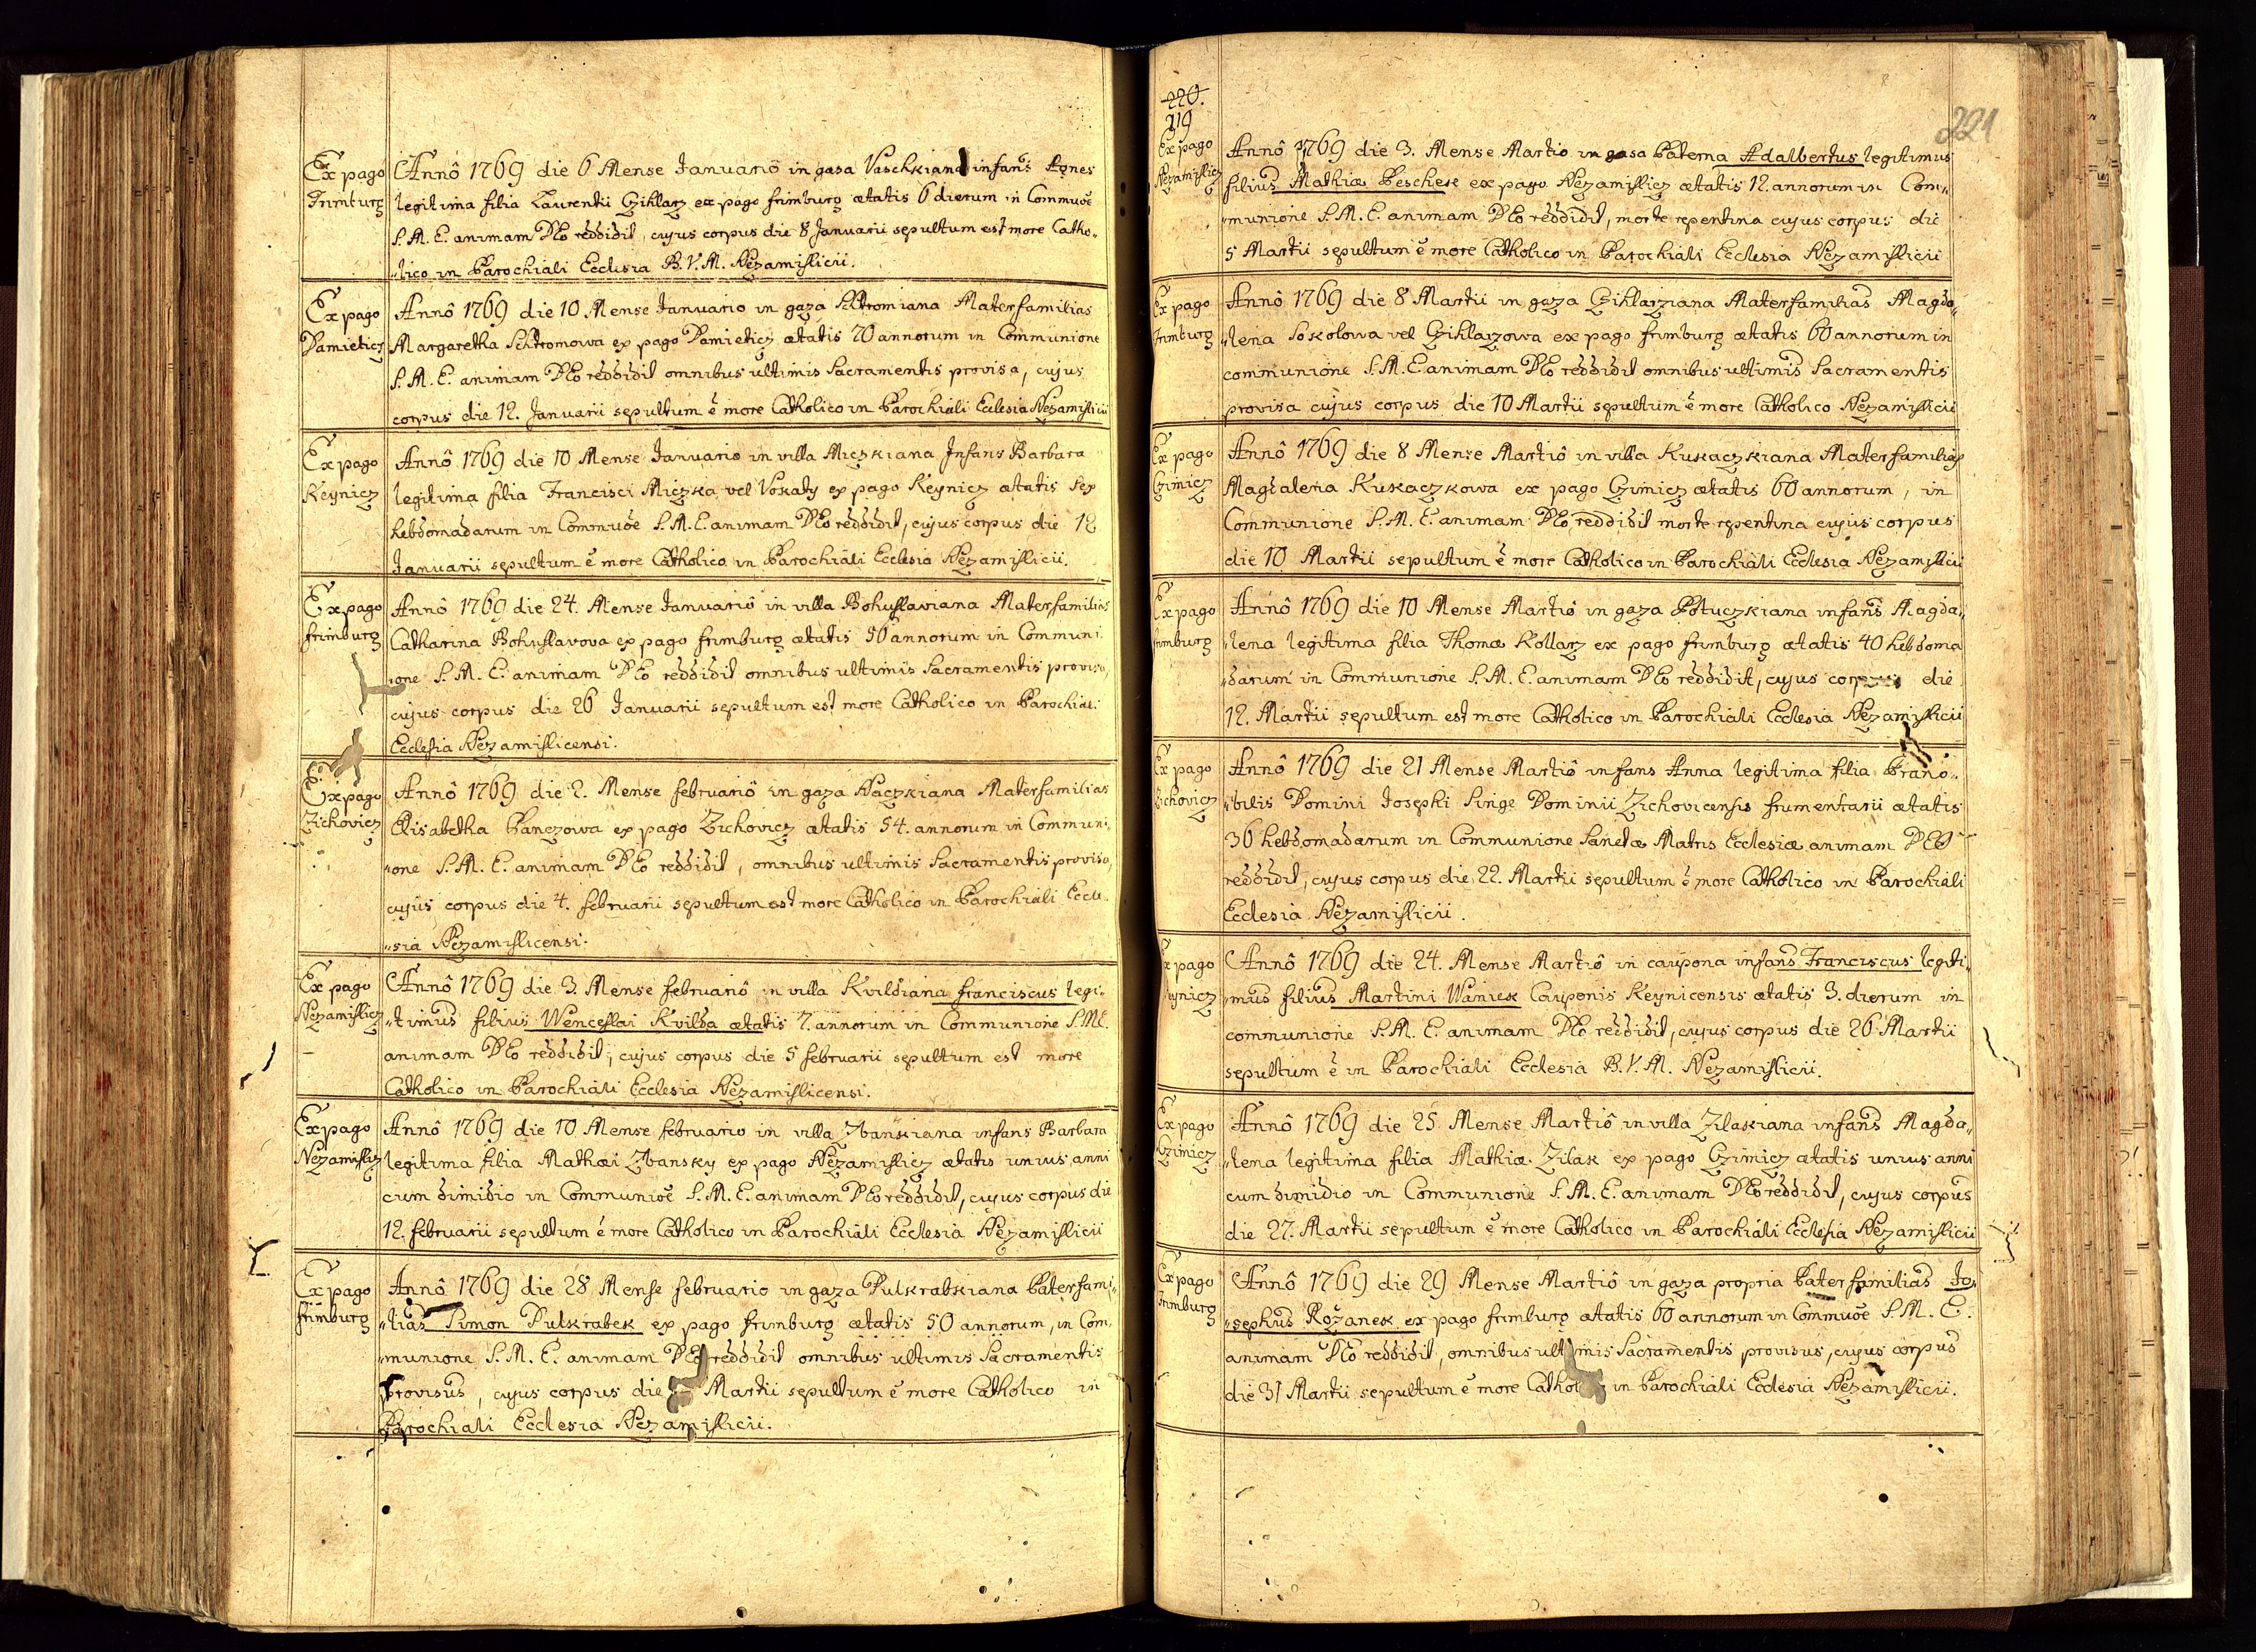 Ex pago
Frimburg
Annô 1769 die 6 Mense Januariô in gasa Vaschkiana infans Agnes
legitima filia Laurentii Cziklarz ex pago frimburg ætatis 6 dierum in Commuōe
S. M. E. animam DEo reddidit, cujus corpus die 8 Januarii sepultum est more Catho„
„lico in Parochiali Ecclesia B. V. M. Nezamislicii.
Ex pago
Damieticz
Annô 1769 die 10 Mense Januario in gaza Schtromiana Materfamilias
Margaretha Schtromowa ex pago Damieticz ætatis 70 annorum in Communione
S. M. E. animam DEo reddidit omnibus ultimis Sacramentis provisa, cujus
corpus die 12. Januarii sepultum ē more Catholico in Parochiali Ecclesia Nezamislicii
Ex pago
Keynicz
Annô 1769 die 10 Mense Januario in villa Miczkiana Infans Barbara
legitima filia Francisci Miczka vel Vokaty ex pago Keynicz ætatis sex
hebdomadarum in Commuōe S. M. E. animam DEo reddidit, cujus corpus die 12
Januarii sepultum ē more Catholico in Parochiali Ecclesia Nezamislicii.
Ex pago
frimburg
Annô 1769 die 24. Mense Januariô in villa Bohuslaviana Materfamilias
Catharina Bohuslavova ex pago frimburg ætatis 50 annorum in Communi
„one S. M. E. animam DEo reddidit omnibus ultimis Sacramentis provisa,
cujus corpus die 26 Januarii sepultum est more Catholico in Parochiali
Ecclesia Nezamislicensi.
Ex pago
Zichovicz
Annô 1769 die 2. Mense februariô in gaza Naczkiana Materfamilias
Elisabetha Panczowa ex pago Zichovicz ætatis 54. annorum in Communi„
„one S. M. E. animam DEo reddidit, omnibus ultimis Sacramentis provisa,
cujus corpus die 4. februarii sepultum est more Catholico in Parochiali Eccle„
„sia Nezamislicensi.
Ex pago
Nezamislicz
Annô 1769 die 3. Mense februariô in villa Kvildiana franciscus legi„
„timus filius Wenceslai Kvilda ætatis 7. annorum in Communione S. M. E.
animam DEo reddidit, cujus corpus die 5 februarii sepultum est more
Catholico in Parochiali Ecclesia Nezamislicensi.
Ex pago
Nezamislicz
Annô 1769 die 10 Mense februario in villa Zbanskiana infans Barbara
legitima filia Mathæi Zbansky ex pago Nezamislicz ætatis unius anni
cum dimidio in Commuiōe S. M. E. animam DEo reddidit, cujus corpus die
12. februarii sepultum ē more Catholico in Parochiali Ecclesia Nezamislicii
Ex pago
frimburg
Annô 1769 die 28 Mense februario in gaza Pulkrabkiana Paterfami„
„lias Simon Pulkrabek ex pago frimburg ætatis 50 annorum, in Com„
„munione S. M. E. animam DEo reddidit omnibus ultimis Sacramentis
provisus, cujus corpus die Martii sepultum ē more Catholico in
Parochiali Ecclesia Nezamislicii.
220.
219
221
Ex pago
Nezamislicz
Annô 1769 die 3. Mense Martio in gasa Paterna Adalbertus legitimus
filius Mathiæ Peschek ex pago Nezamislicz ætatis 12. annorum in Com„
„munione S. M. E. animam DEo reddidit, morte repentina cujus corpus die
5 Martii sepultum ē more Catholico in Parochiali Ecclesia Nezamislicii
Ex pago
frimburg
Annô 1769 die 8 Martii in gaza Cziklarziana Materfamilias Magda„
„lena Sokolowa vel Cziklarzowa ex pago frimburg ætatis 60 annorum in
communione S. M. E animam DEo reddidit omnibus ultimis Sacramentis
provisa cujus corpus die 10 Martii sepultum ē more Catholico Nezamislicii
Ex pago
Czimicz
Annô 1769 die 8 Mense Martiô in villa Kukaczkiana Materfamilias
Magdalena Kukaczkowa ex pago Czimicz ætatis 60 annorum, in
Communione S. M. E. animam DEo reddidit morte repentina cujus corpus
die 10 Martii sepultum ē more Catholico in Parochiali Ecclesia Nezamislicii
Ex pago
frimburg
Annô 1769 die 10 Mense Martiô in gaza Potuczkiana infans Magda„
„lena legitima filia Thomæ Kollarz ex pago frimburg ætatis 40 hebdoma
„darum in Communione S. M. E. animam DEo reddidit, cujus corpus die
12. Martii sepultum est more Catholico in Parochiali Ecclesia Nezamislicii
Ex pago
Zichovicz
Annô 1769 die 21 Mense Martiô infans Anna legitima filia Præno„
„bilis Domini Josephi Singe Dominii Zichovicensis frumentarii ætatis
36 hebdomadarum in Communione Sanctæ Matris Ecclesiæ animam DEO
reddidit, cujus corpus die 22. Martii sepultum ē more Catholico in Parochiali
Ecclesia Nezamislicii.
Ex pago
Keynicz
Annô 1769 die 24. Mense Martiô in caupona infans Franciscus legiti„
„mus filius Martini Waniek Cauponis Keynicensis ætatis 3. dierum in
communione S. M. E. animam DEo reddidit, cujus corpus die 26 Martii
sepultum ē in Parochiali Ecclesia B. V. M. Nezamislicii.
Ex pago
Czimicz
Annô 1769 die 25 Mense Martiô in villa Zilakiana infans Magda„
„lena legitima filia Mathiæ Zilak ex pago Czimicz ætatis unius anni
cum dimidio in Communione S. M. E. animam DEo reddidit, cujus corpus
die 27. Martii sepultum ē more Catholico in Parochiali Ecclesia Nezamislicii
Ex pago
frimburg
Annô 1769 die 29 Mense Martiô in gaza propria Pater familias Jo„
„sephus Rožanek ex pago frimburg ætatis 60 annorum in Commuōe S. M. E.
animam DEo reddidit, omnibus ultimis Sacramentis provisus, cujus corpus
die 31 Martii sepultum ē more Catholico in Parochiali Ecclesia Nezamislicii.